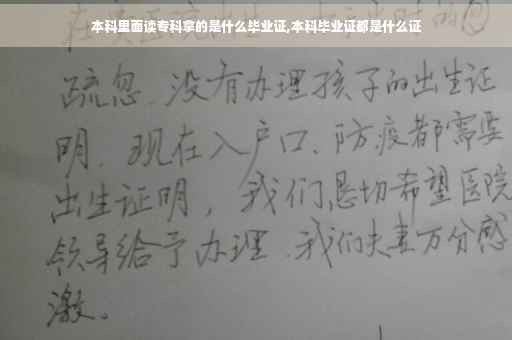 本科里面读专科拿的是什么毕业证,本科毕业证都是什么证
疏忽、没有办理孩子的出生证
明、现在入户口、防疫都需要
出生证明，我们恳切希望医院
领导给予办理、我们夫妻万分感
激。